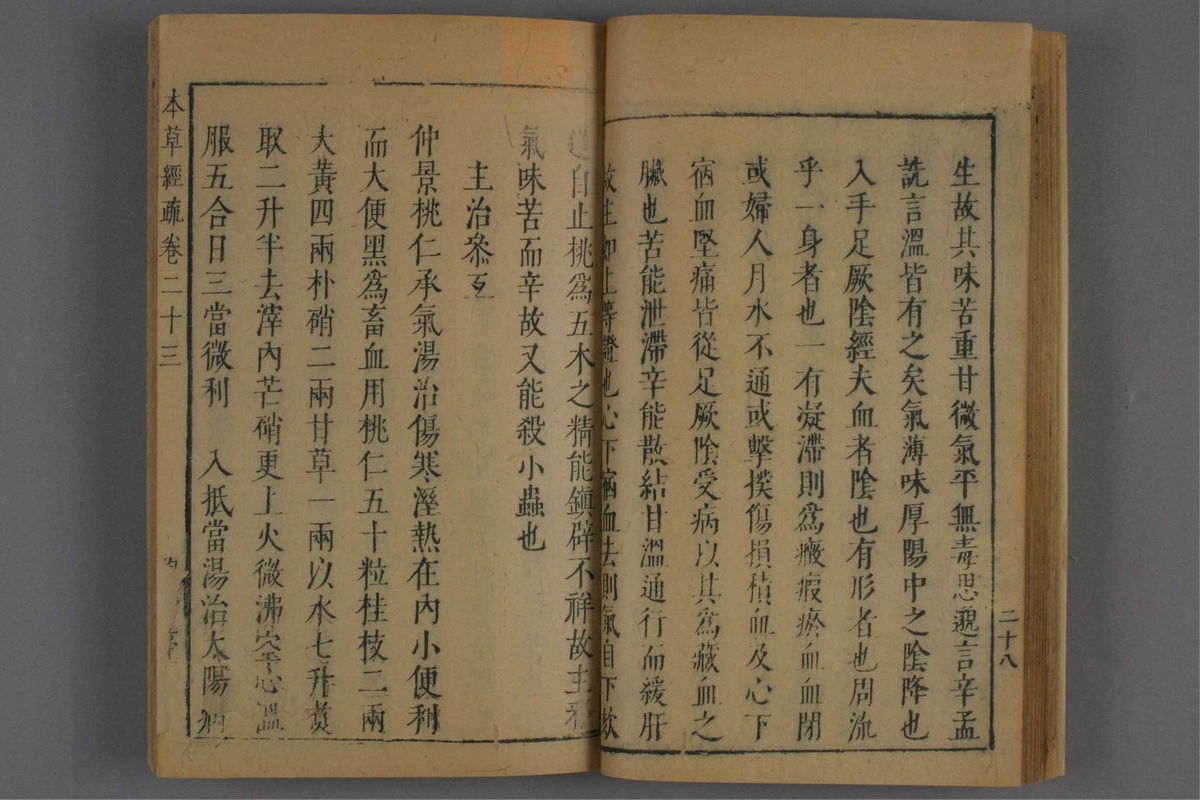 生故其味苦重甘微氣平無毒思邈言辛孟
詵言溫皆有之矣氣薄味厚陽中之陰降也
入手足厥陰經夫血者陰也有形者也周流
乎一身者也一有凝滯則爲癥瘕瘀血血閉
或婦人月水不通或擊撲傷損積血及心下
宿血堅痛皆從足厥陰受病以其爲藏血之
臟也苦能泄滯辛能散結甘溫通行而緩肝
故主如上等證也心下宿血去則氣自下欬
自止桃爲五木之精能鎮辟不祥故主邪
氣味苦而辛故又能殺小蟲也
主治叅互
仲景桃仁承氣湯治傷寒溼熱在內小便利
而大便黑爲畜血用桃仁五十粒桂枝二兩
大黃四兩朴硝二兩甘草一兩以水七升煑
取二升半去滓內芒硝更上火微沸空心溫
服五合日三當微利 入抵當湯治太陽病
二十八
本草經疏 卷二十三